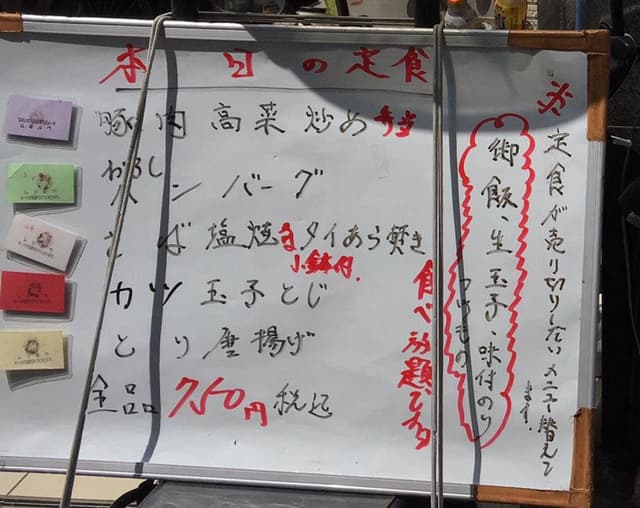 本日の定食
豚肉高菜炒め弁当
おろし
ハンバーグ
さば塩焼き タイあら焚き
小鉢付
カツ玉子とじ
とり唐揚げ
全品750円税込
※定食が売り切りしだいメニュー替えて
ます。
御飯、生玉子・味付のり
つけもの
食べ放題です